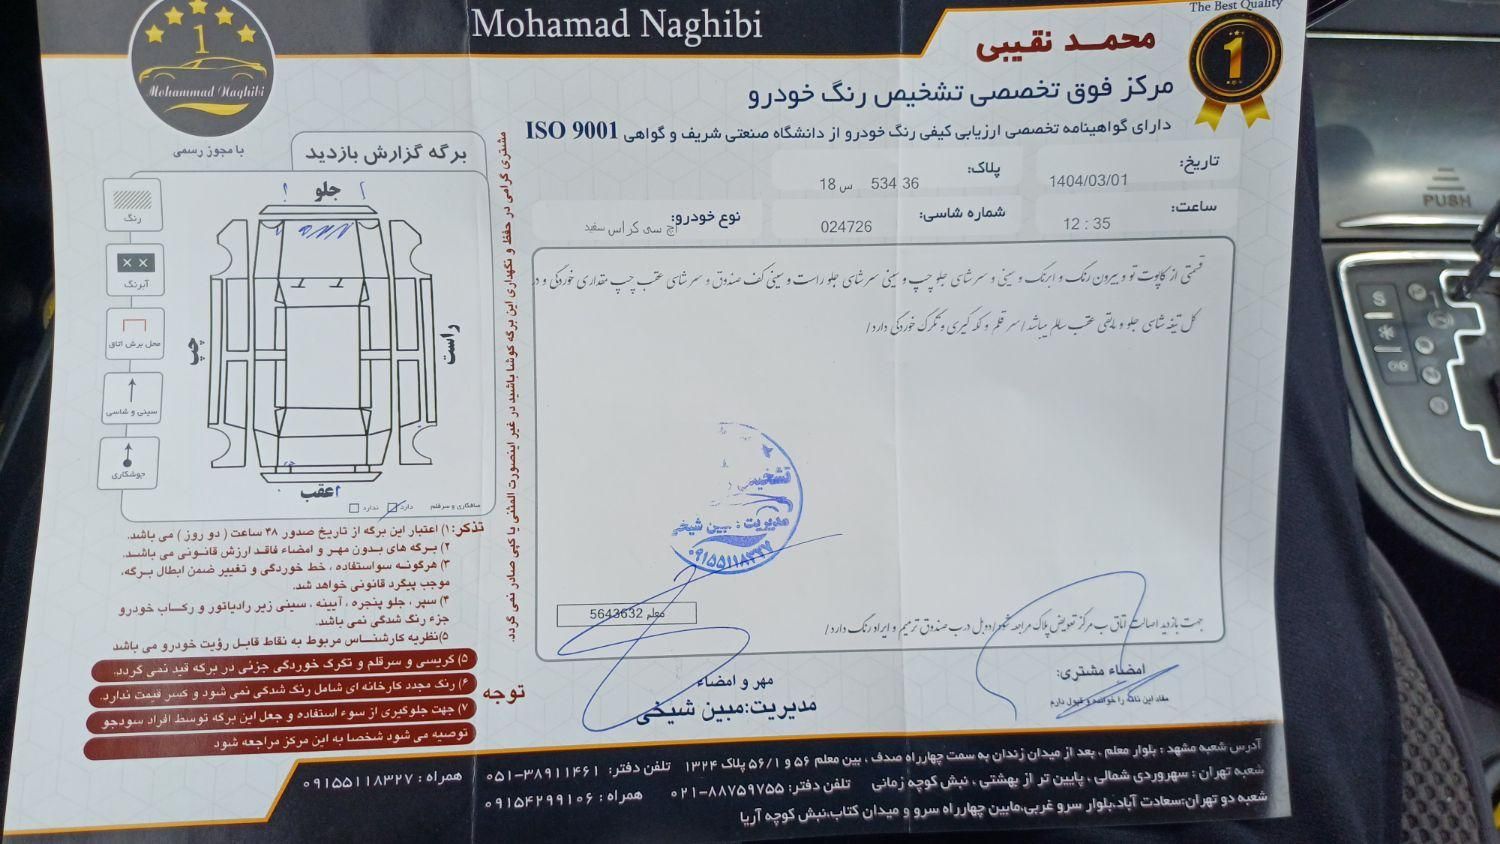 The Best Quality
1
Mohamad Naghibi
محمد نقیبی
1
Mohammad Naghibi
با مجوز رسمی
مرکز فوق تخصصی تشخیص رنگ خودرو
دارای گواهینامه تخصصی ارزیابی کیفی رنگ خودرو از دانشگاه صنعتی شریف و گواهی ISO 9001
تاریخ: 1404/03/01
پلاک: 36 534 س 18
ساعت: 12 : 35
شماره شاسی: 024726
نوع خودرو: اچ سی کراس سفید
قسمتی از کاپوت تو و بیرون رنگ و ابرنگ و سینی و سرشاسی جلو چپ و سینی سرشاسی جلو راست و سینی کف صندوق و سرشاسی عقب چپ مقداری خوردگی و در
کل تیغه شاسی جلو و مابقی عقب سالم میباشد/سرقلم و لکه گیری و تگرگ خوردگی دارد/
تشخیص
مدیریت : مبین شیخی
۰۹۱۵۵۱۱۸۳۲۷
معلم 5643632
جهت بازدید اصالت اتاق ب مرکز تعویض پلاک مراجعه شود/دوبل درب صندوق ترمیم و ایراد رنگ دارد/
امضاء مشتری:
مفاد این نامه را خوانده و قبول دارم
مهر و امضاء
مدیریت:مبین شیخی
مشتری گرامی در حفظ و نگهداری این برگه کوشا باشید در غیر اینصورت المثنی یا کپی صادر نمی گردد.
برگه گزارش بازدید
جلو
راست
چپ
عقب
رنگ
آبرنگ
محل برش اتاق
سینی و شاسی
جوشکاری
صافکاری و سرقلم دارد ندارد
تذکر: ۱) اعتبار این برگه از تاریخ صدور ۴۸ ساعت ( دو روز ) می باشد.
۲) برگه های بدون مهر و امضاء فاقد ارزش قانونی می باشد.
۳) هرگونه سواستفاده ، خط خوردگی و تغییر ضمن ابطال برگه،
موجب پیگرد قانونی خواهد شد.
۴) سپر ، جلو پنجره ، آیینه ، سینی زیر رادیاتور و رکاب خودرو
جزء رنگ شدگی نمی باشد.
۵)نظریه کارشناس مربوط به نقاط قابل رؤیت خودرو می باشد
توجه
۵) گریسی و سر قلم و تگرگ خوردگی جزئی در برگه قید نمی گردد.
۶) رنگ مجدد کارخانه ای شامل رنگ شدگی نمی شود و کسر قیمت ندارد.
۷) جهت جلوگیری از سوء استفاده و جعل این برگه توسط افراد سودجو
توصیه می شود شخصا به این مرکز مراجعه شود
آدرس شعبه مشهد : بلوار معلم ، بعد از میدان زندان به سمت چهارراه صدف ، بین معلم ۵۶ و ۵۶/۱ پلاک ۱۳۲۴ تلفن دفتر: ۳۸۹۱۱۴۶۱-۰۵۱ همراه : ۰۹۱۵۵۱۱۸۳۲۷
شعبه تهران : سهروردی شمالی ، پایین تر از بهشتی ، نبش کوچه زمانی تلفن دفتر: ۸۸۷۵۹۷۵۵-۰۲۱ همراه : ۰۹۱۵۴۲۹۹۱۰۶
شعبه دو تهران:سعادت آباد،بلوار سرو غربی،مابین چهارراه سرو و میدان کتاب،نبش کوچه آریا
PUSH
S